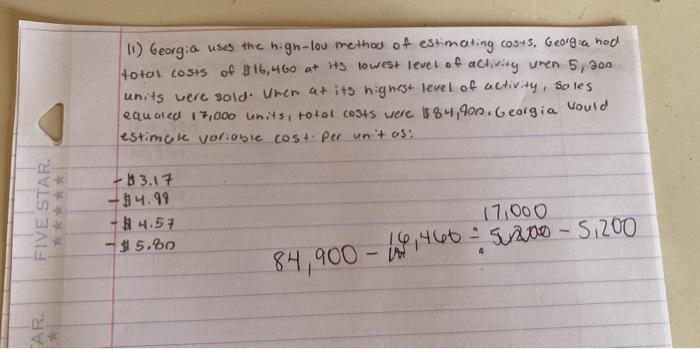 11) Georgia uses the high-low method of estimating costs. Georgia had
total costs of $16,460 at its lowest level of activity when 5,200
units were sold. When at its highest level of activity, sales
equaled 17,000 units, total costs were $84,900. Georgia would
estimate variable cost per unit as:
- $3.17
- $4.99
- $4.57
- $5.80
17,000
84,900 - 16,460 ÷ 5,200 - 5,200
FIVE STAR.
AR.